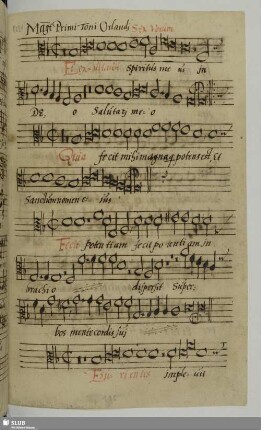 Magt Primi Toni Orlandi Sex Vocum
Et exultavit Spiritus me us in
Deo o Salutari me o
Quia fecit mihi magna qui potens est, et
Sanctum nomen e ius
Fecit potentiam fecit potentiam in
brachio dispersit Super
bos mente cordis sui
Esurientes imple uit
SLUB